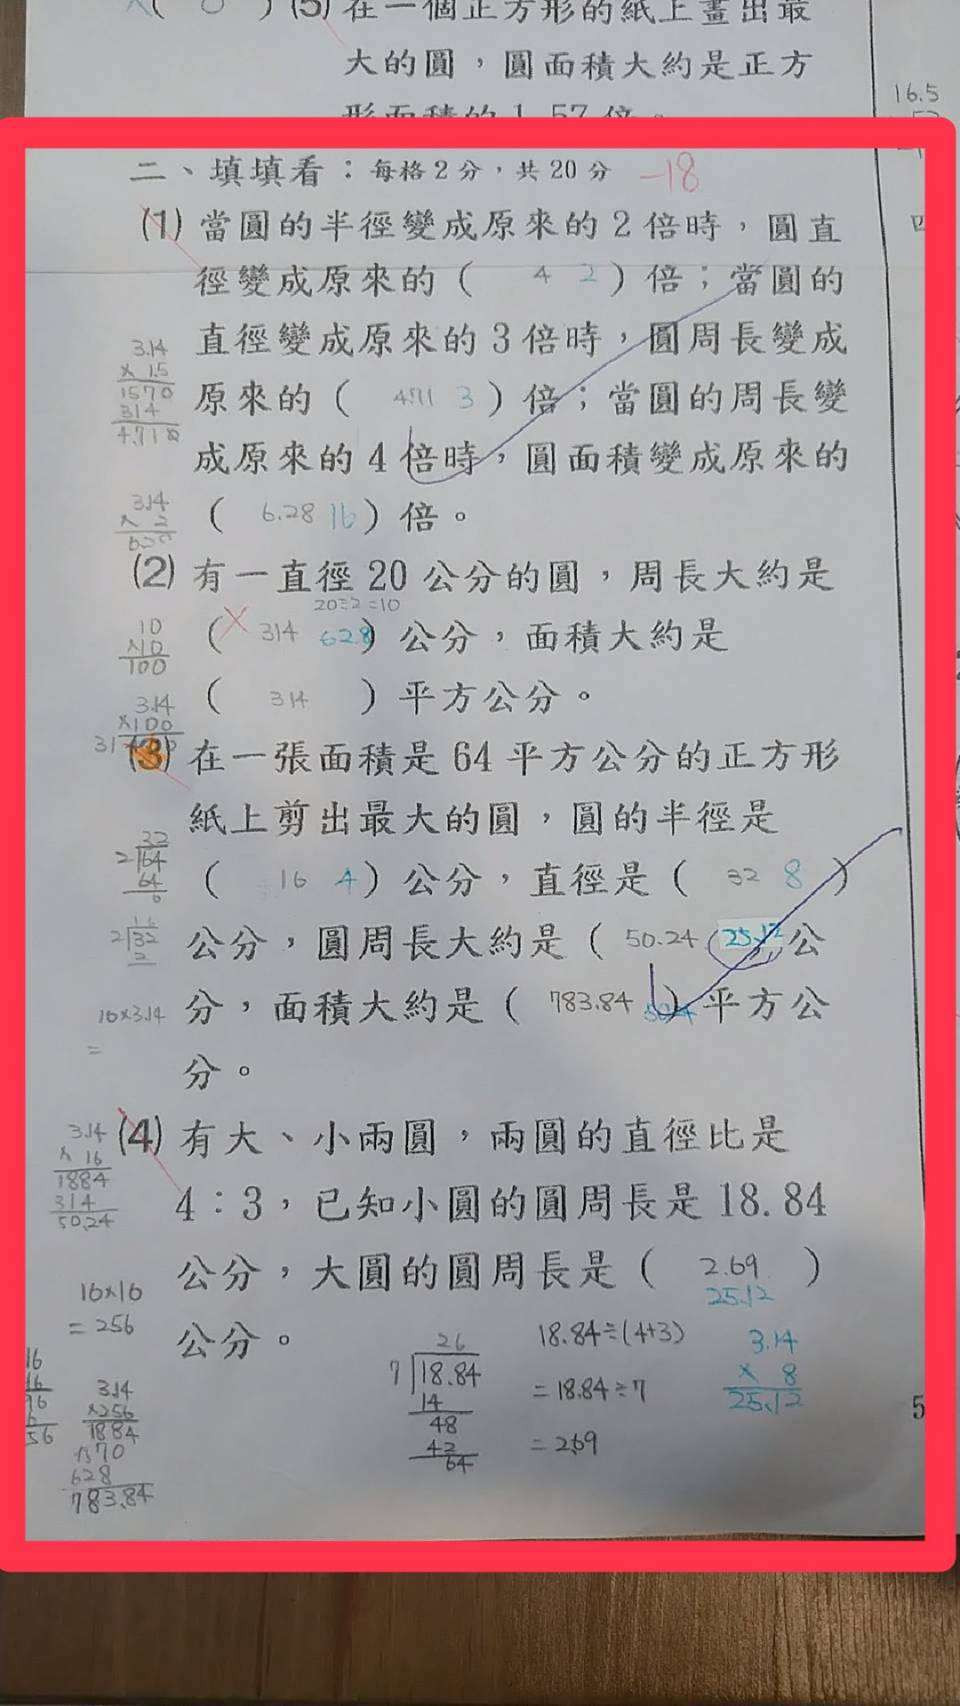 (5) 在一個正方形的紙上畫出最
大的圓，圓面積大約是正方
形面積的1.57倍。
16.5
二、填填看：每格2分，共20分 -18
(1) 當圓的半徑變成原來的2倍時，圓直
徑變成原來的( 4 2 )倍；當圓的
直徑變成原來的3倍時，圓周長變成
原來的( 4.71 3 )倍；當圓的周長變
成原來的4倍時，圓面積變成原來的
( 6.28 16 )倍。
3.14
× 1.5
1570
314
4.710
3.14
× 2
(2) 有一直徑20公分的圓，周長大約是
20÷2=10
( 314 62.8 )公分，面積大約是
( 314 )平方公分。
10
×10
100
3.14
×100
(3) 在一張面積是64平方公分的正方形
紙上剪出最大的圓，圓的半徑是
( 16 4 )公分，直徑是( 32 8 )
公分，圓周長大約是( 50.24 25.12 公
分，面積大約是( 783.84 50.24 )平方公
分。
32
2 64
64
0
16
2 32
2
16×3.14
=
(4) 有大、小兩圓，兩圓的直徑比是
4：3，已知小圓的圓周長是18.84
公分，大圓的圓周長是( 2.69 )
25.12
公分。
3.14
× 16
1884
314
50.24
16×16
=256
3.14
×256
1884
1570
628
783.84
26
7 18.84
14
48
42
64
18.84÷(4+3)
=18.84÷7
=2.69
3.14
× 8
25.12
5